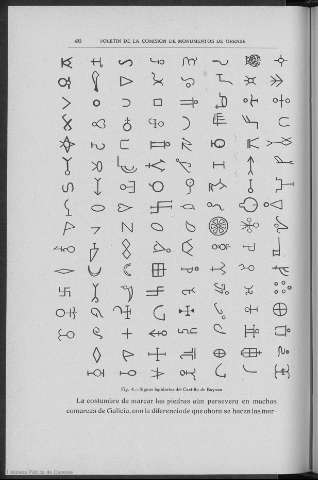 402 BOLETIN DE LA COMISION DE MONUMENTOS DE ORENSE
Fig. 4.—Signos lapidarios del Castillo de
La costumbre de marcar las piedras aún persevera en muchas
comarcas de Galicia, con la diferencia de que ahora se hacen las mar-
Biblioteca Pública de Ourense